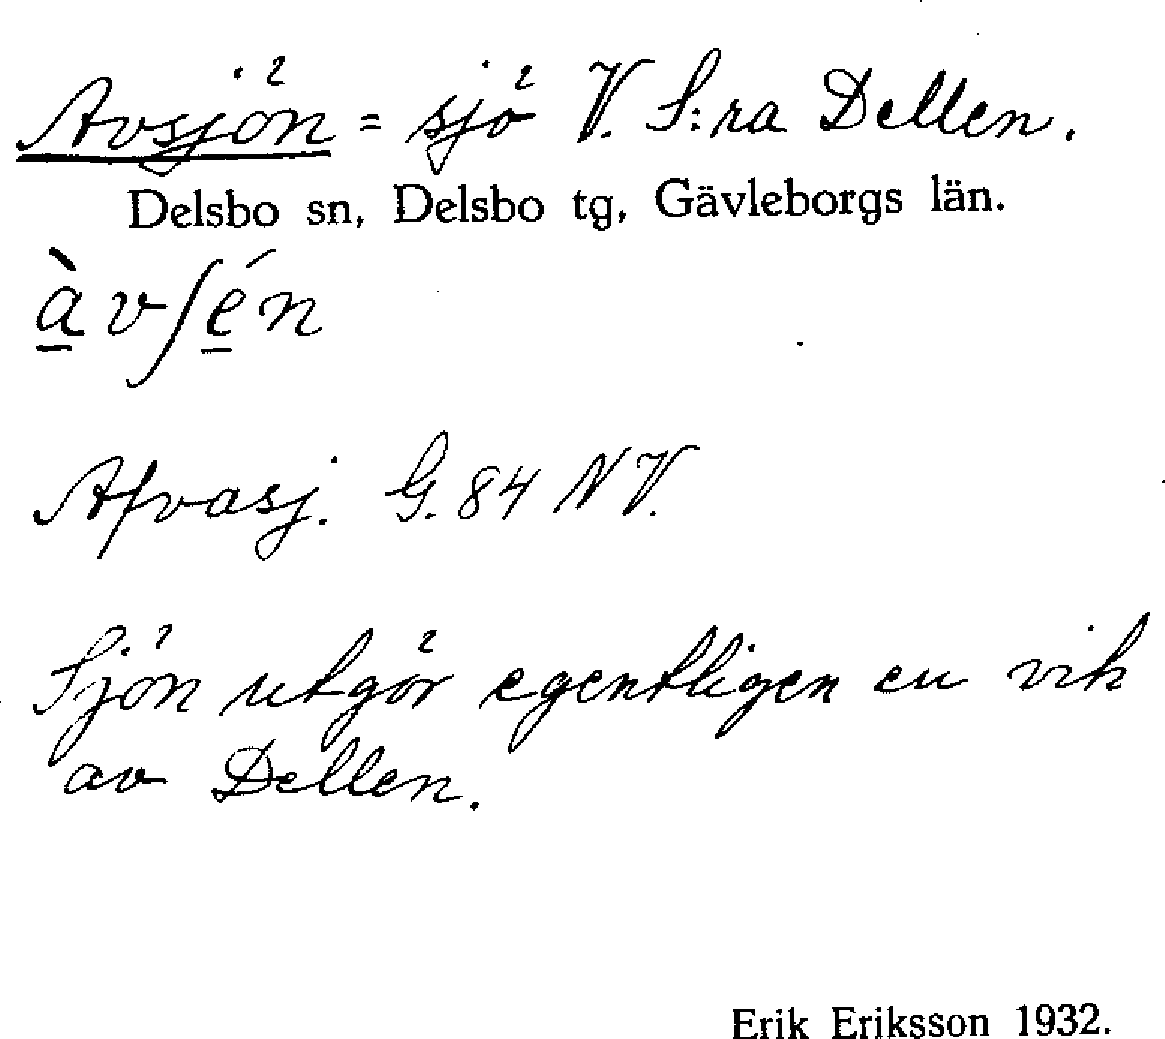 Avsjön = sjö V. S:ra Dellen.
Delsbo sn, Delsbo tg, Gävleborgs län.
à̱vʃé̱n
Afvasj. G. 84 NV.
Sjön utgör egentligen en vik
av Dellen.
Erik Eriksson 1932.